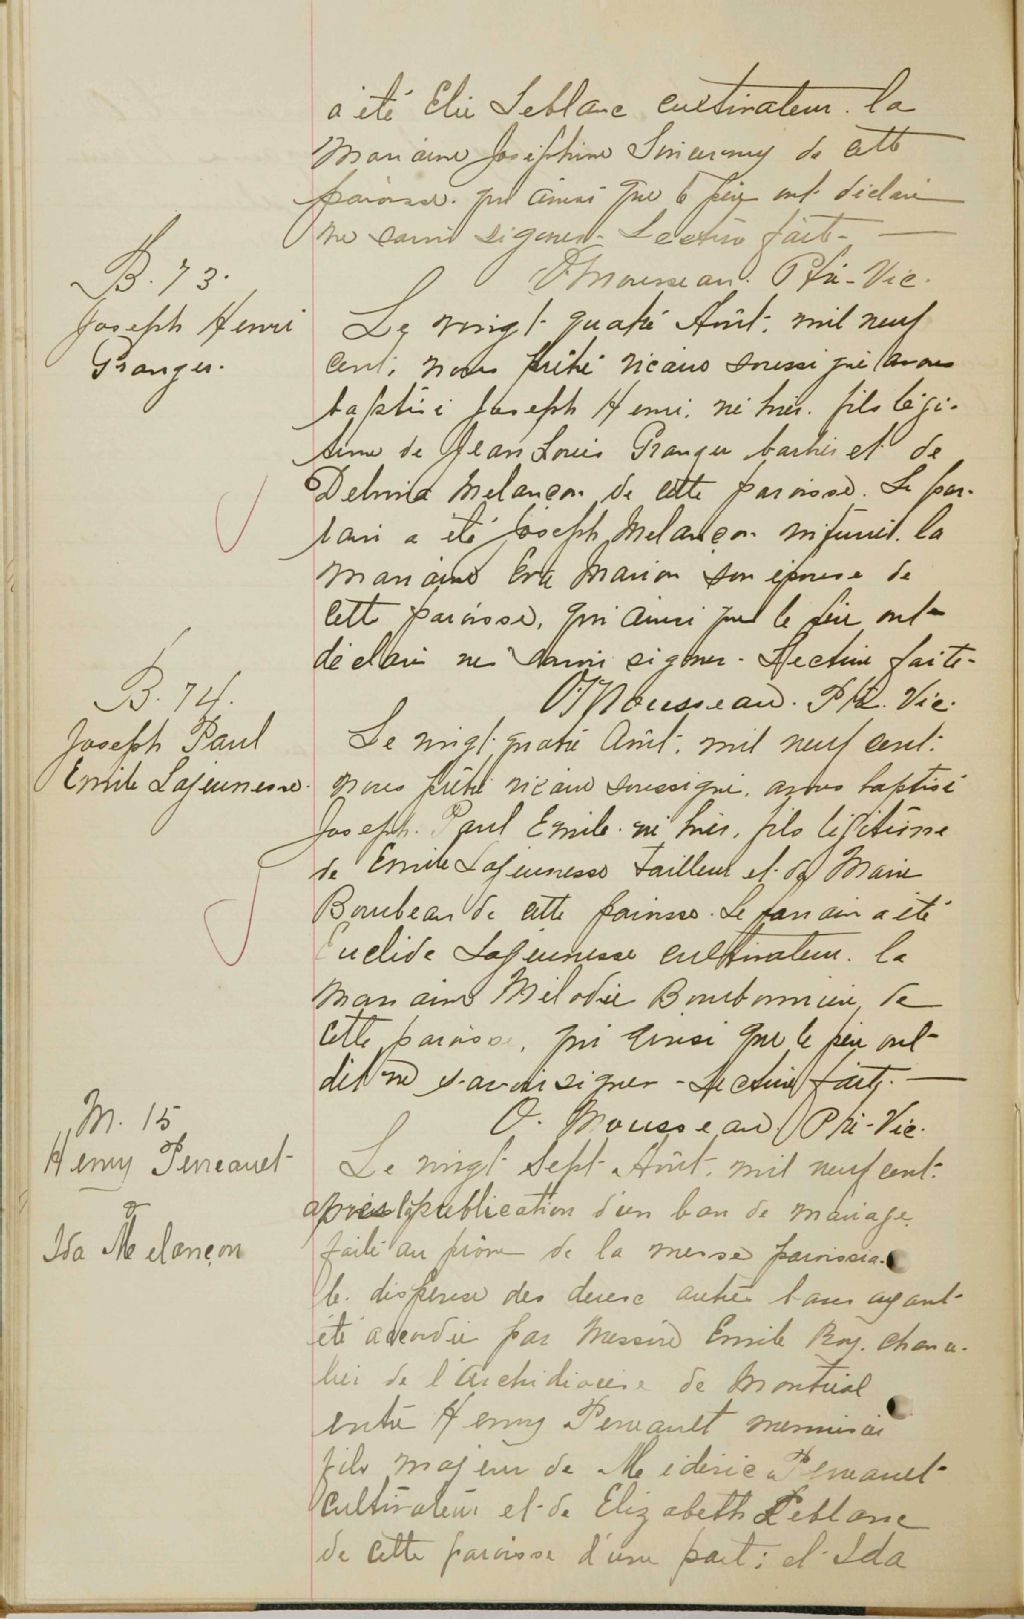 a été Elie Leblanc cultivateur. la
marraine Josephine de cette
paroisse. qui ainsi que le père ont déclaré
ne savoir signer. Lecture faite. —
O. Mousseau. Ptre-Vic.
B. 73.
Joseph Henri
Granger.
Le vingt quatre Août, mil neuf
cent, nous prêtre vicaire soussigné avons
baptisé Joseph Henri, né hier. fils légi-
time de Jean Louis Granger barbier et de
Delvina Melançon de cette paroisse. Le par-
rain a été Joseph Melançon menuisier. la
marraine Eva Marion son épouse de
cette paroisse, qui ainsi que le père ont
déclaré ne savoir signer - Lecture faite-
O. Mousseau. Ptre. Vic.
B. 74.
Joseph Paul
Emile Lajeunesse.
Le vingt quatre Août, mil neuf cent.
nous prêtre vicaire soussigné, avons baptisé
Joseph. Paul Emile. né hier, fils légitime
de Emile Lajeunesse tailleur et de Marie
Bombeau de cette paroisse. Le parrain a été
Euclide Lajeunesse cultivateur. la
marraine Mélodie Bourbonnière, de
cette paroisse, qui ainsi que le père ont
dit ne savoir signer - Lecture faite. —
O. Mousseau. Ptre-Vic.
M. 15
Henry Perreault
&
Ida Melançon
Le vingt sept Août, mil neuf cent.
après la publication d'un ban de mariage
faite au prône de la messe paroissia-
le. dispense des deux autres bans ayant
été accordée par Messire Emile Roy, chance-
lier de l'Archidiocèse de Montréal
entre Henry Perreault menuisier
fils majeur de Mederic Perreault
cultivateur et de Elizabeth Leblanc
de cette paroisse d'une part; et Ida